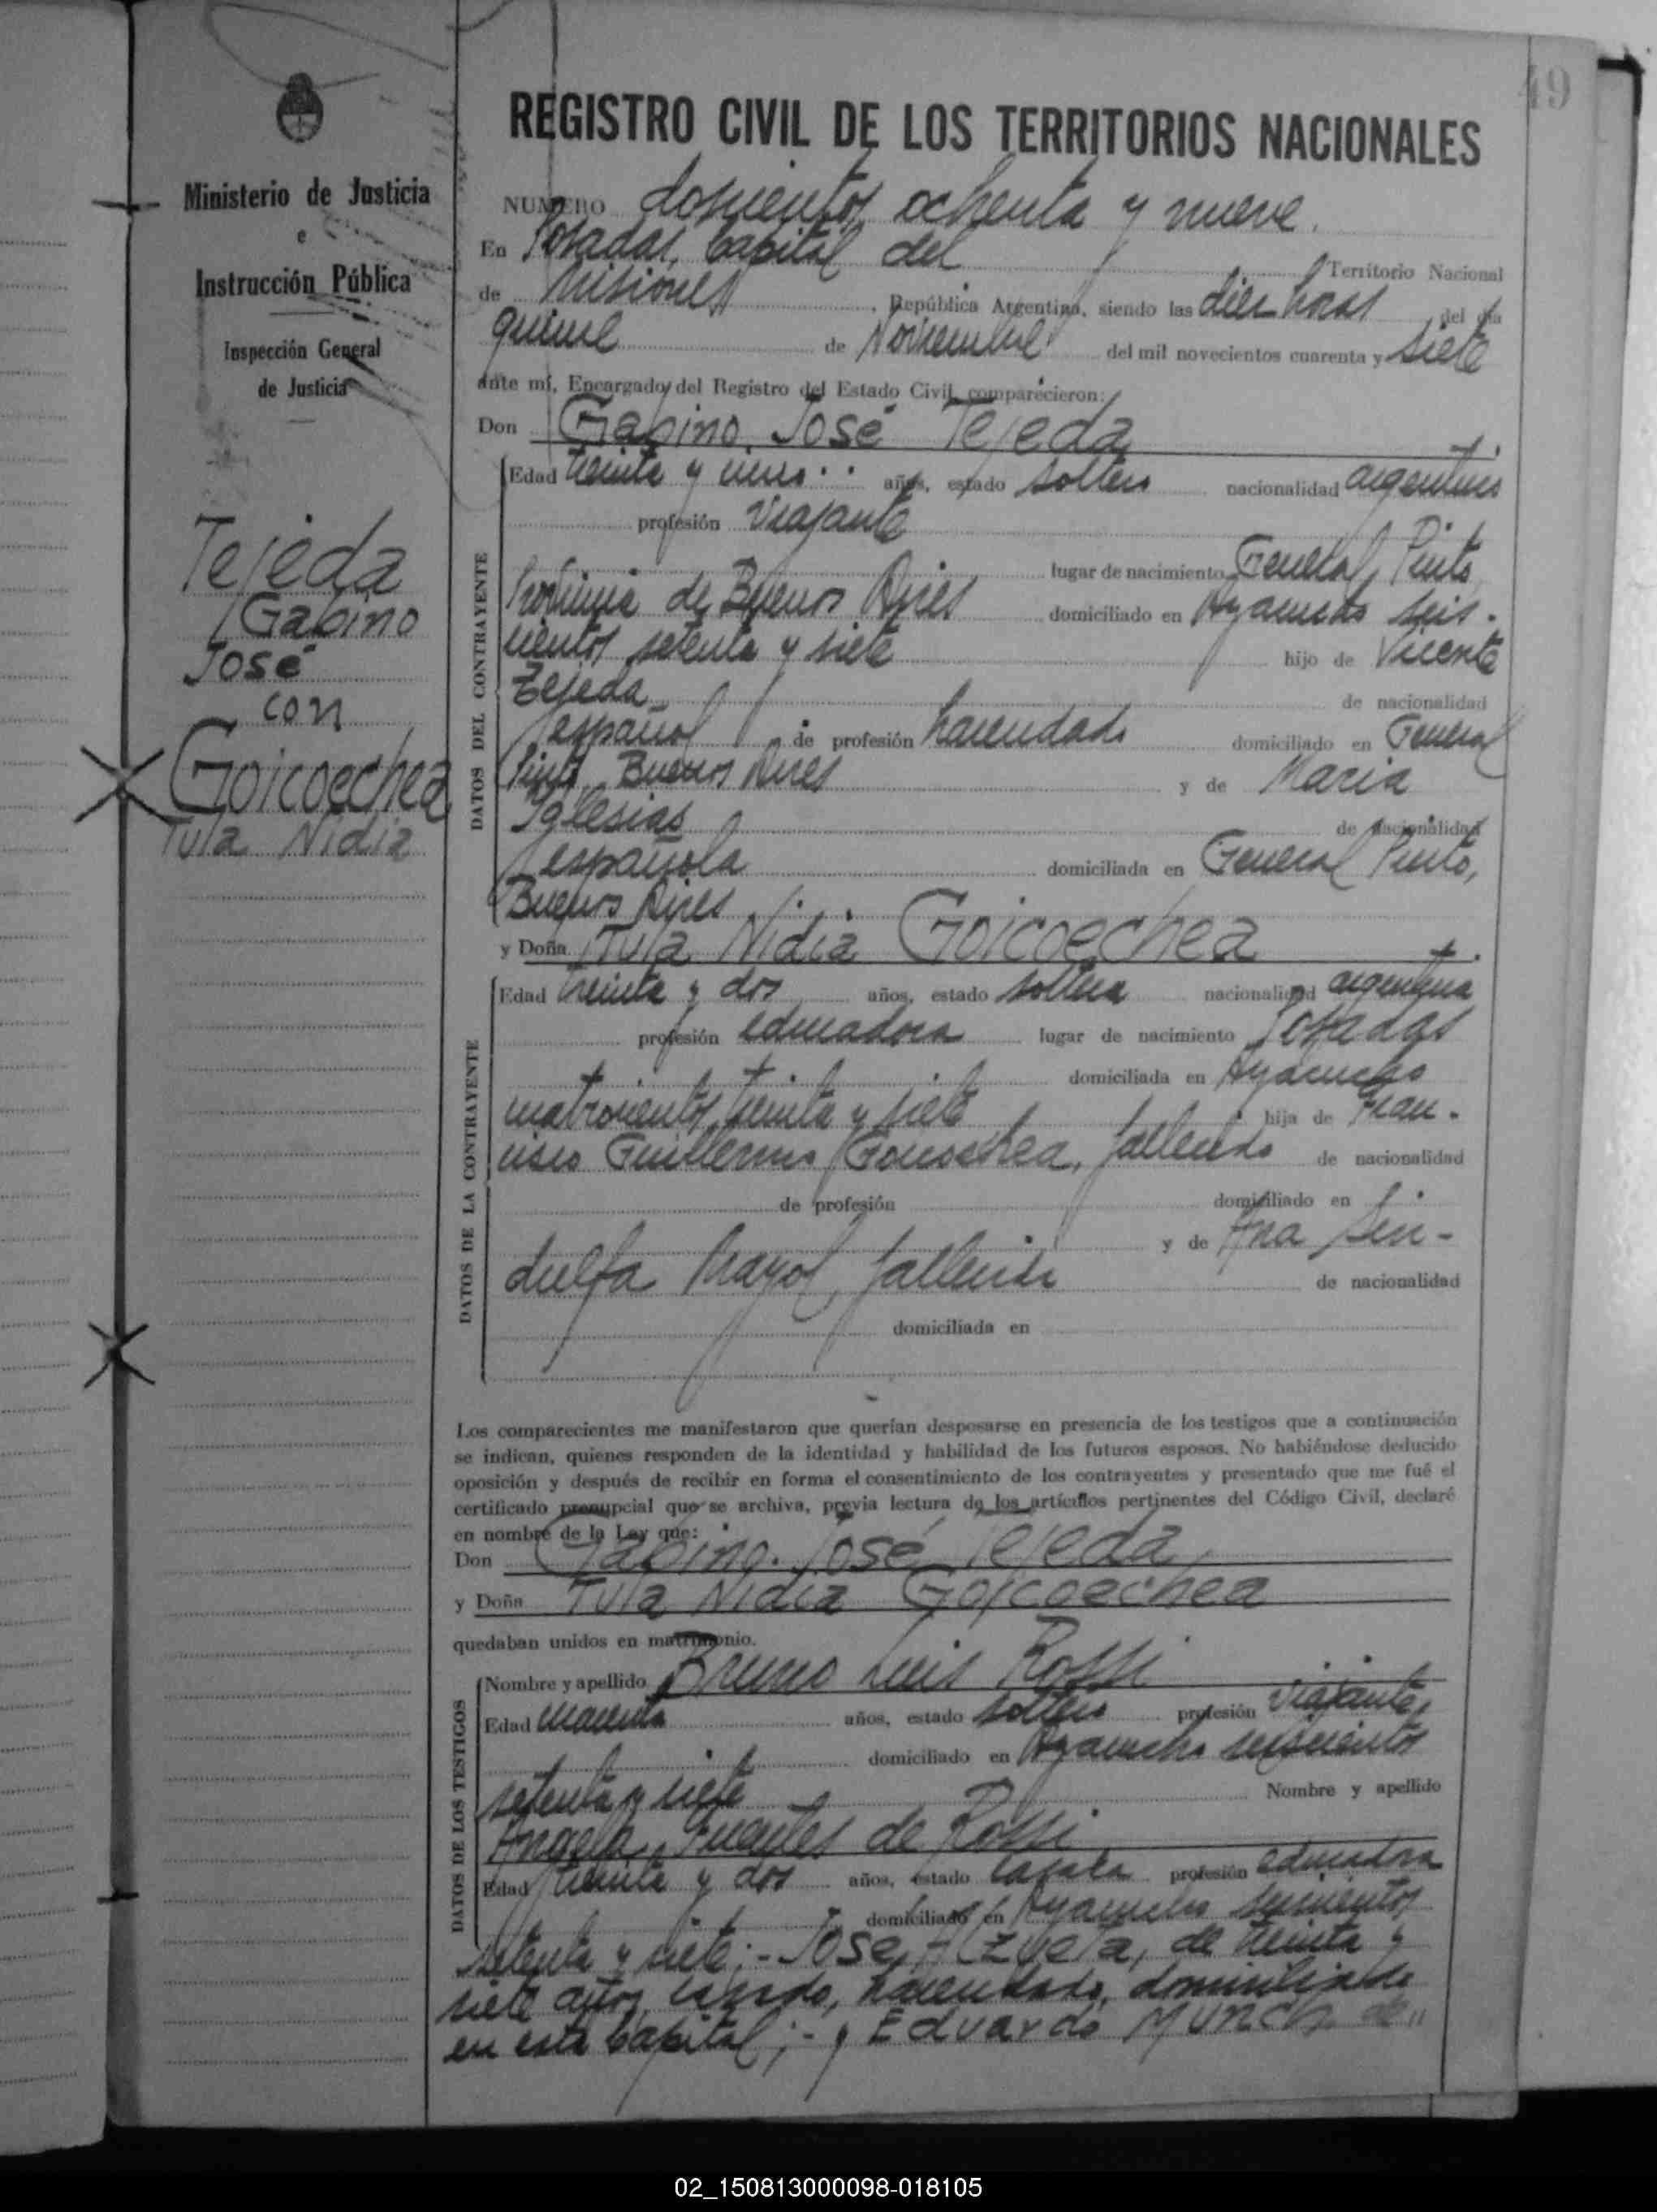 49
Ministerio de Justicia
e
Instrucción Pública
Inspección General
de Justicia
Tejeda
Gabino
José
con
Goicoechea
Tula Nidia
REGISTRO CIVIL DE LOS TERRITORIOS NACIONALES
NUMERO doscientos ochenta y nueve.
En Posadas, Capital del Territorio Nacional
de Misiones, República Argentina, siendo las diez horas del día
quince de Noviembre del mil novecientos cuarenta y siete
ante mí, Encargado del Registro del Estado Civil, comparecieron:
Don Gabino José Tejeda
Edad treinta y años, estado soltero nacionalidad argentino
profesión Viajante
lugar de nacimiento General Pinto
Provincia de Buenos Aires domiciliado en Ayacucho seis-
cientos setenta y siete hijo de Vicente
Tejeda de nacionalidad
español de profesión hacendado domiciliado en General
Pinto, Buenos Aires y de Maria
Iglesias de nacionalidad
española domiciliada en General Pinto,
Buenos Aires
y Doña Tula Nidia Goicoechea
Edad treinta y dos años, estado soltera nacionalidad argentina
profesión educadora lugar de nacimiento Posadas
domiciliada en Ayacucho
cuatrocientos treinta y siete hija de Fran-
cisco Guillermo Goicoechea, fallecido de nacionalidad
de profesión domiciliado en
y de Ana Sin-
dulfa Mayol, fallecida de nacionalidad
domiciliada en
DATOS DEL CONTRAYENTE
DATOS DE LA CONTRAYENTE
Los comparecientes me manifestaron que querían desposarse en presencia de los testigos que a continuación
se indican, quienes responden de la identidad y habilidad de los futuros esposos. No habiéndose deducido
oposición y después de recibir en forma el consentimiento de los contrayentes y presentado que me fué el
certificado prenupcial que se archiva, previa lectura de los artículos pertinentes del Código Civil, declaré
en nombre de la Ley que:
Don Gabino José Tejeda
y Doña Tula Nidia Goicoechea
quedaban unidos en matrimonio.
Nombre y apellido Bruno Luis Rossi
Edad cuarenta años, estado soltero profesión viajante,
domiciliado en Ayacucho seiscientos
setenta y siete Nombre y apellido
Angela Fuentes de Rossi
Edad treinta y dos años, estado casada profesión educadora
domiciliado en Ayacucho seiscientos
setenta y siete;- José Azueta, de treinta y
siete años, casado, hacendado, domiciliado
en esta Capital;- y Eduardo Munch de
DATOS DE LOS TESTIGOS
02_150813000098-018105